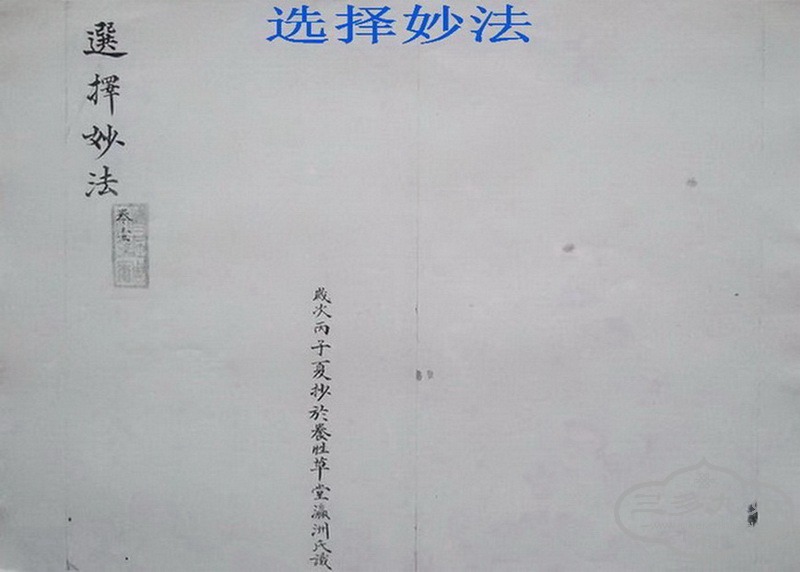 选择妙法
選擇妙法
歲次丙子夏抄於養性草堂瀛洲氏識